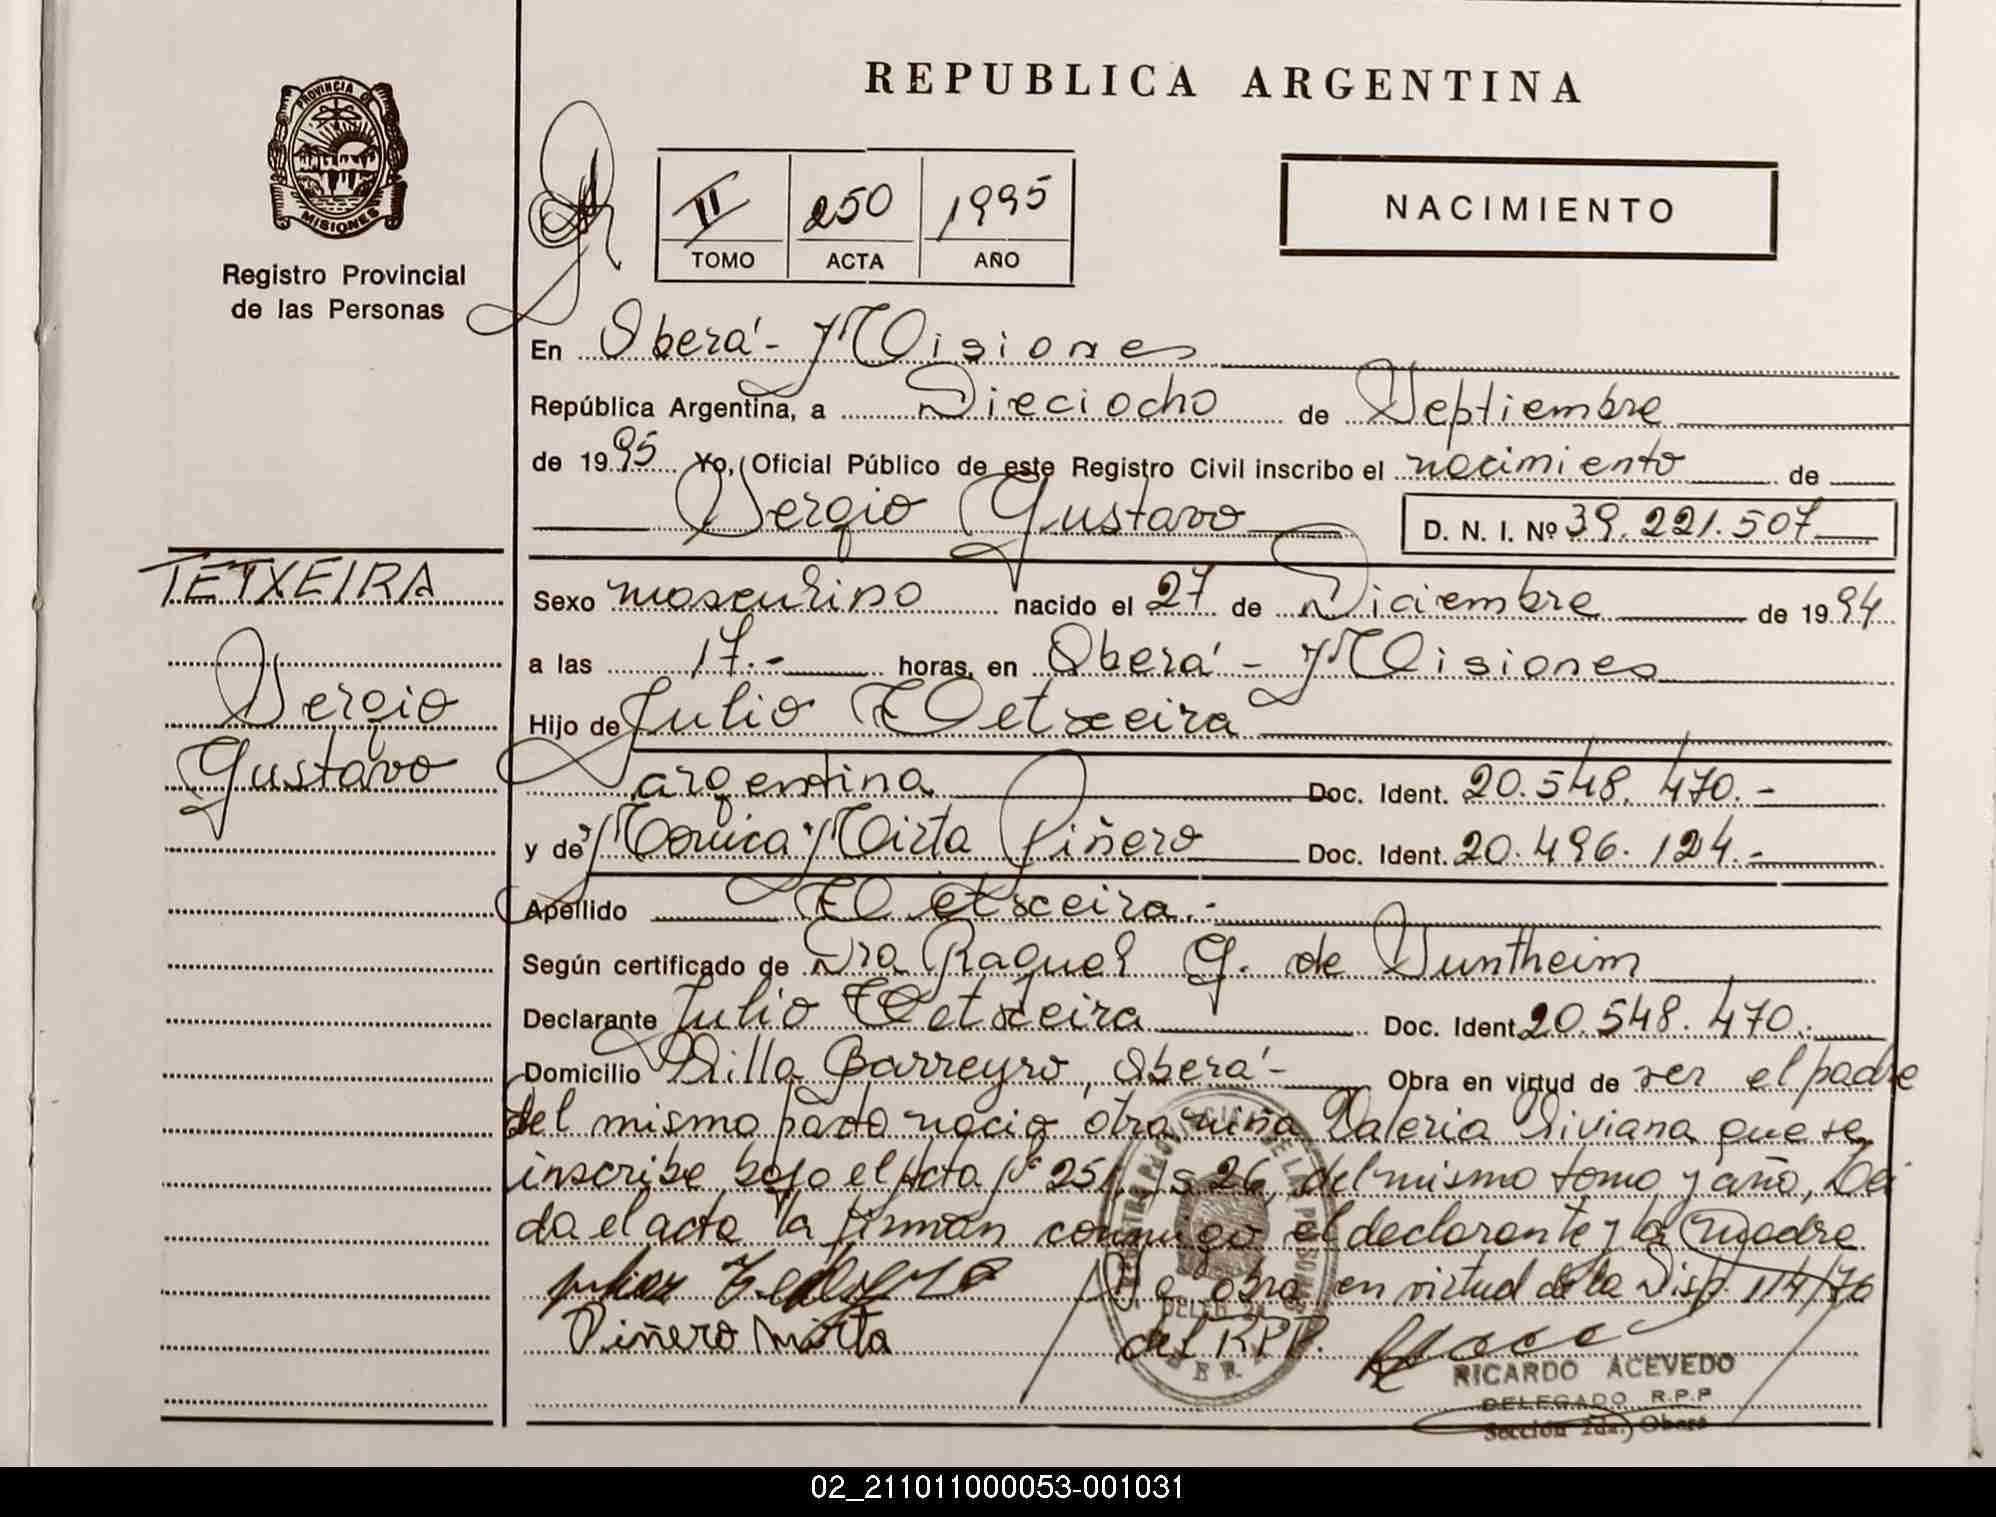 REPUBLICA ARGENTINA
PROVINCIA DE
MISIONES
Registro Provincial
de las Personas
II 250 1995
TOMO ACTA AÑO
NACIMIENTO
En Oberá - Misiones
República Argentina, a Dieciocho de Septiembre
de 1995 Yo, Oficial Público de este Registro Civil inscribo el nacimiento de
Sergio Gustavo D. N. I. Nº 39.221.507
TETXEIRA
Sergio
Gustavo
Sexo masculino nacido el 27 de Diciembre de 1994
a las 17.- horas, en Oberá - Misiones
Hijo de Julio Tetxeira
argentina Doc. Ident. 20.548.470.-
y de Monica Mirta Piñero Doc. Ident. 20.496.124.-
Apellido Tetxeira.-
Según certificado de Dra Raquel G. de Suntheim
Declarante Julio Tetxeira Doc. Ident. 20.548.470.
Domicilio Villa Barreyro, Oberá - Obra en virtud de ser el padre
del mismo parto nacio otra niña Valeria Viviana que se
inscribe bajo el Acta Nº 251, fs 26, del mismo tomo y año, Lei
da el acta la firman conmigo el declarante y la madre
Se obra en virtud de la Disp. 114/76
Piñero Mirta del RPP.
RICARDO ACEVEDO
DELEGADO R.P.P
Sección 2da.) Oberá
02_211011000053-001031